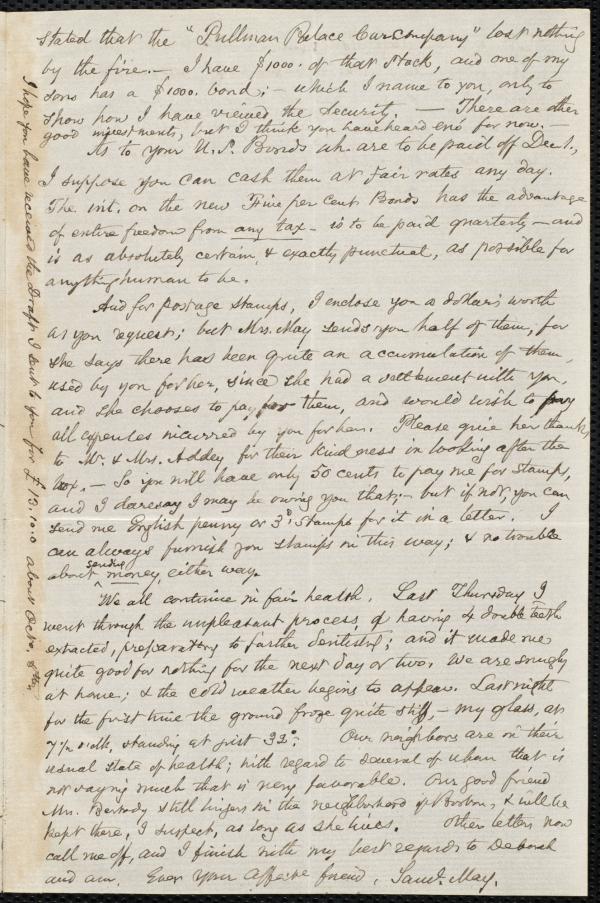 stated that the "Pullman Palace Car Company" lost nothing
by the fire. — I have $1000. of that stock, and one of my
sons has a $1000. bond; — which I name to you, only to
show how I have viewed the security. — There are other
good investments, but I think you have heard eno' for now. —
As to your U.S. Bonds wh. are to be paid off Dec. 1.,
I suppose you can cash them at fair rates any day.
The int. on the new Five per cent Bonds has the advantage
of entire freedom from any tax — is to be paid quarterly — and
is as absolutely certain, & exactly punctual, as possible for
anything human to be.
And for postage stamps, I enclose you a dollar's worth
as you request; but Mrs. May sends you half of them, for
she says there has been quite an accumulation of them,
used by you for her, since she had a settlement with you,
and she chooses to pay for them, and would wish to pay
all expenses incurred by you for her. Please give her thanks
to Mr. & Mrs. Addey for their kindness in looking after the
box. — So you will have only 50 cents to pay me for stamps,
and I daresay I may be owing you that; — but if not, you can
send me English penny or 3d. stamps for it in a letter. I
can always furnish you stamps in this way; & no trouble
about sending money, either way.
We all continue in fair health. Last Thursday I
went through the unpleasant process, of having 4 double teeth
extracted, preparatory to further dentistry; and it made me
quite good for nothing for the next day or two. We are snugly
at home; & the cold weather begins to appear. Last night
for the first time the ground froze quite stiff, — my glass, at
7 1/2 o'clk, standing at just 32°. Our neighbors are in their
usual state of health; with regard to several of whom that is
not saying much that is very favorable. Our good friend
Mrs. Peabody still lingers in the neighborhood of Boston, & will be
kept there, I suspect, as long as she lives. Other letters now
call me off, and I finish with my best regards to Deborah
and am, Ever your affecte. friend, Saml. May.
I hope you have received the Draft I sent to you for £13.10.0 about Octo.